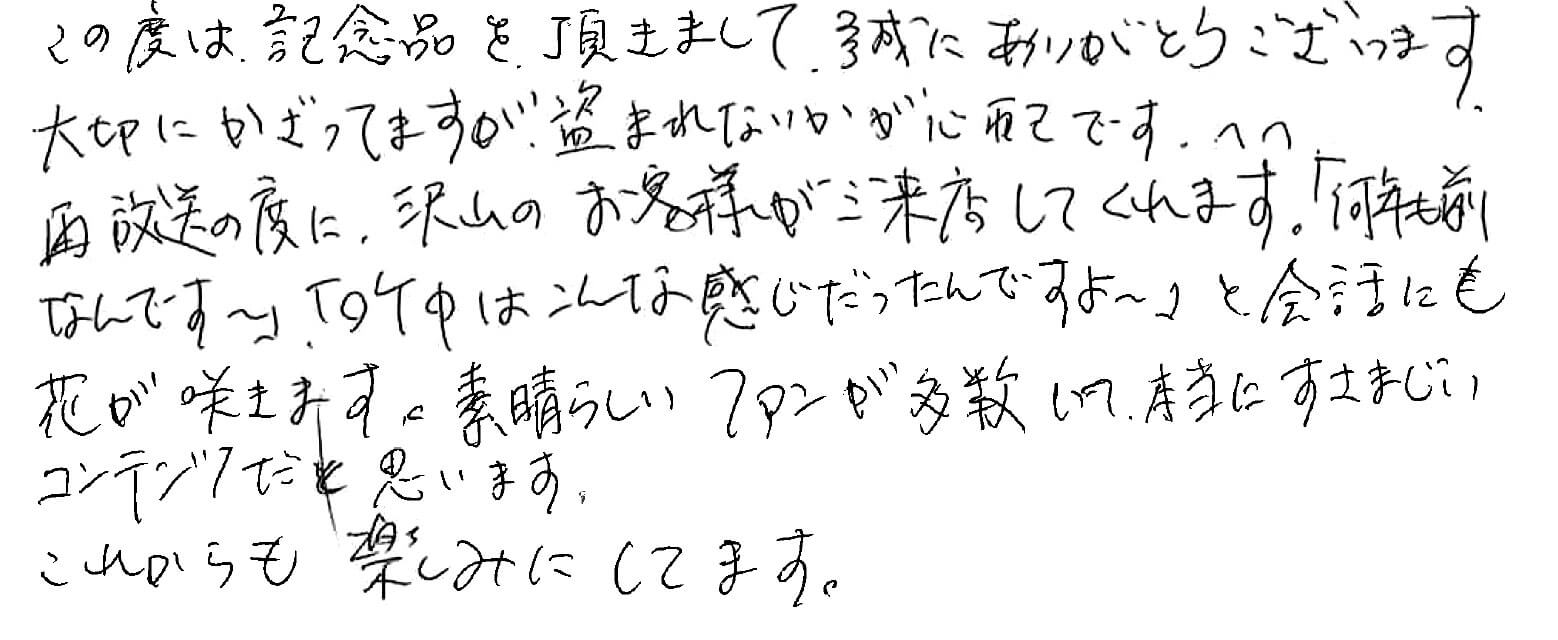 この度は、記念品を、頂きまして、誠にありがとうございます。
大切にかざってますが、盗まれないかが心配です。^^
再放送の度に、沢山のお客様がご来店してくれます。「何年も前
なんです~」、「ロケ中はこんな感じだったんですよ~」と会話にも
花が咲きます。素晴らしいファンが多数いて、本当にすさまじい
コンテンツだと思います。
これからも楽しみにしてます。